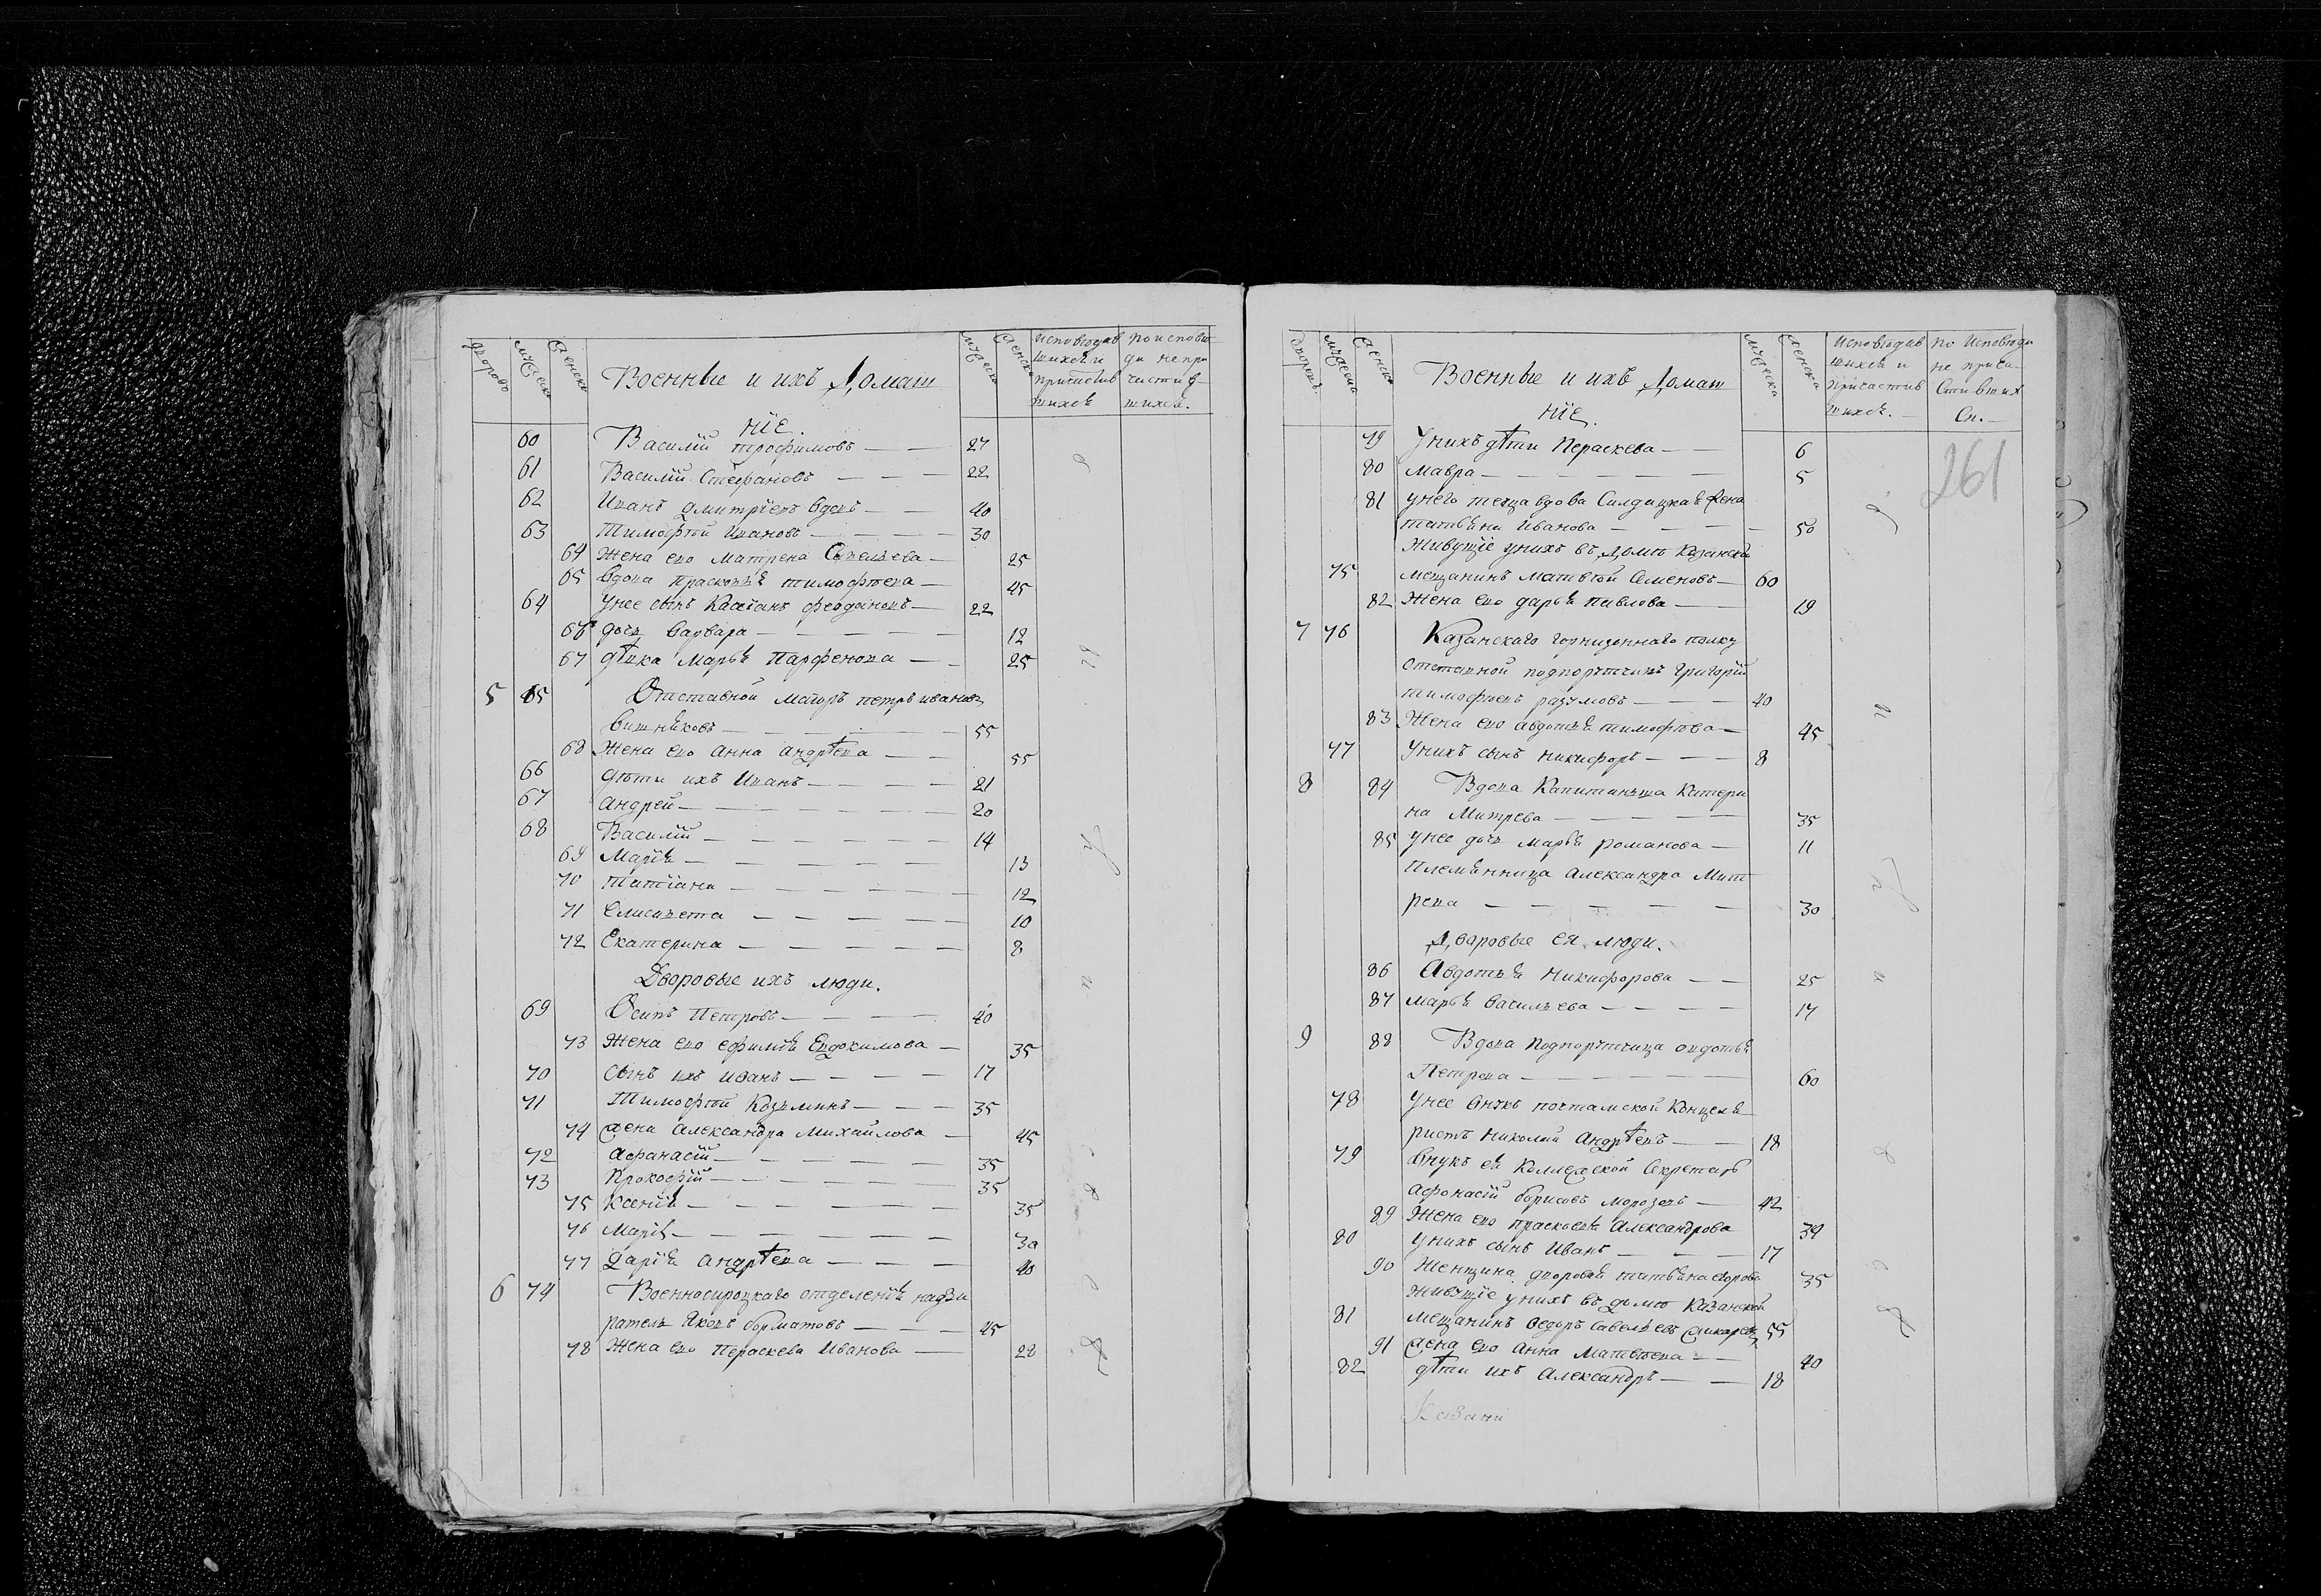 дворовъ
мужеска
женска
Военные и ихъ домаш
ніе.
мужеска
женска
Исповѣдав
шихся и
причастив
шихся
По исповѣ
ди не при
частив
шихся.
60 Василій трофимовъ 27
61 Василій Стефановъ 22
62 Иванъ дмитріевъ вдовъ 40
63 Тимофѣй ивановъ 30
64 Жена его матрена Савельева 25
65 Вдова прасковья тимофѣева 45
64 У нее сынъ Касіанъ феодоновъ 22
66 дочь варвара 12
67 дѣвка Марья Парфенова 25
5 65 Отставной маіоръ петръ ивановъ
Вишняковъ 55
68 Жена его Анна андрѣева 55
66 дѣти ихъ Иванъ 21
67 андрей 20
68 Василій 14
69 Марія 13
70 татіана 12
71 Елисавета 10
72 Екатерина 8
Дворовые ихъ люди.
69 Осипъ Петровъ 40
73 Жена его ефимія Евдокимова 35
70 сынъ ихъ иванъ 17
71 Тимофѣй Козьминъ 35
74 жена Александра Михайлова 45
72 Афанасій 35
73 Прокофій 35
75 Ксенія 35
76 Марія 30
77 Дарія Андрѣева 40
6 74 Военносироцкаго отделенія надзи
ратель Яковъ борматовъ 45
78 Жена его Пераскева Иванова 28
дворовъ
мужеска
женска
Военные и ихъ домаш
ніе.
мужеска
женска
Исповѣдав
шихся и
причастив
шихся.
по Исповѣди
не прича-
стивших
ся.
261
79 У нихъ дѣти Пераскева 6
80 мавра 5
81 у него теща вдова Салдацкая жена
татьяна Иванова 50
Живущіе у нихъ въ домѣ Казанской
75 мещанинъ матвѣй Семеновъ 60
82 Жена его дарья павлова 19
7 76 Казанскаго горнизоннаго полку
отставной подпорутчикъ Григорій
тимофѣевъ разумовъ 40
83 Жена его авдотья тимофѣва 45
77 У нихъ сынъ никифоръ 8
8 84 Вдова Капитанша Катери
на Митрева 35
85 У нее дочь Марья романова 11
Племянница Александра Мит
рева 30
Дваровые ея люди.
86 Авдотья Никифорова 25
87 марья васильева 17
9 88 Вдова Подпорутчица авдотья
Петрова 60
78 У нее внукъ почтамской Канцеля
ристъ Николай Андрѣевъ 18
79 Внукъ ея Колежской Секретарь
афонасій борисовъ морозовъ 42
89 Жена его прасковья Александрова 39
80 У нихъ сынъ Иванъ 17
90 Женщина дворовая татьяна 35
Живущіе у нихъ въ домѣ Казанской
81 мещанинъ Федоръ савельевъ 55
91 жена его Анна Матвѣева 40
82 дѣти ихъ Александръ 18